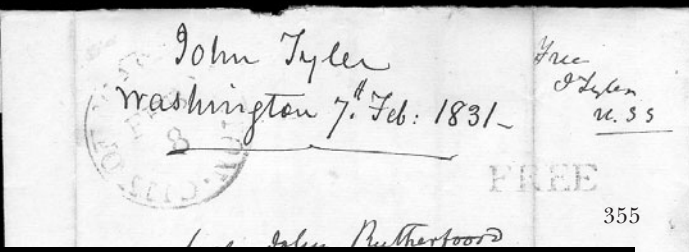 John Tyler
Washington 7th Feb: 1831-
Free
J Tyler
U.S S
CITY OF
FEB
8
FREE
John Rutherfoord
355